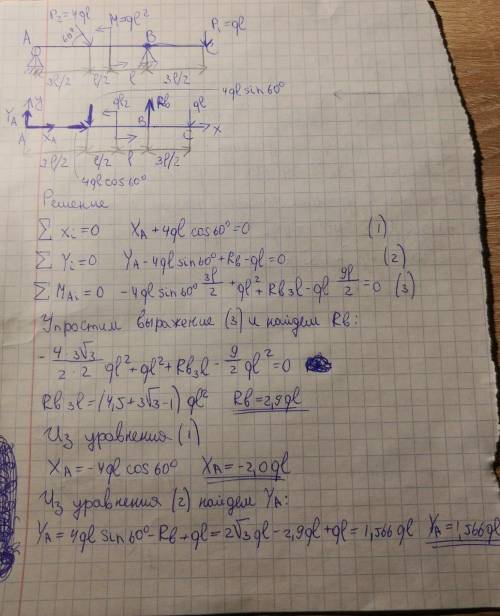 P₂=4ql M=ql² P₁=ql
A 60° B C
3l/2 l/2 l 3l/2
4ql sin60°
y
Y_A ql² R_b ql
A X_A B C x
3l/2 l/2 l 3l/2
4ql cos60°
Решение
∑ x_i=0 X_A+4ql cos60°=0 (1)
∑ Y_i=0 Y_A-4ql sin60°+R_b-ql=0 (2)
∑ M_{A_i}=0 -4ql sin60° 3l/2 +ql²+R_b 3l-ql 9l/2=0 (3)
Упростим выражение (3) и найдем R_b:
-4·3√3/2·2 ql²+ql²+R_b 3l-9/2 ql²=0
R_b 3l=(4,5+3√3-1)ql² R_b=2,9ql
Из уравнения (1)
X_A=-4ql cos60° X_A=-2,0ql
Из уравнения (2) найдем Y_A:
Y_A=4ql sin60°-R_b+ql=2√3ql-2,9ql+ql=1,566ql Y_A=1,566ql